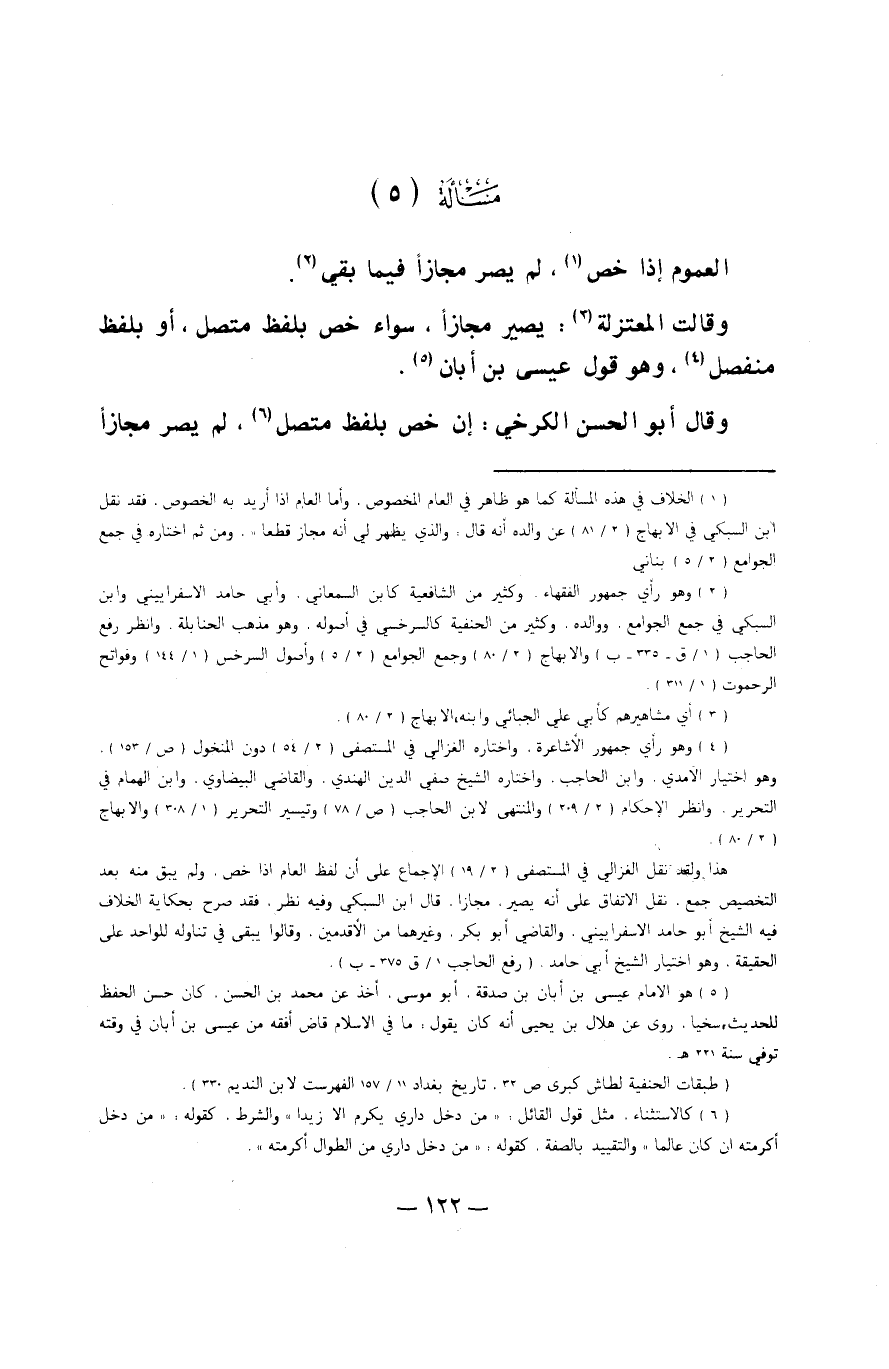 مسألة ( ٥ )
العموم إذا خص(١) ، لم يصر مجازاً فيما بقي(٢).
وقالت المعتزلة(٣) : يصير مجازاً ، سواء خص بلفظ متصل ، أو بلفظ
منفصل(٤) ، وهو قول عيسى بن أبان(٥) .
وقال أبو الحسن الكرخي : إن خص بلفظ متصل(٦) ، لم يصر مجازاً
( ١ ) الخلاف في هذه المسألة كما هو ظاهر في العام المخصوص . وأما العام اذا أريد به الخصوص . فقد نقل
ابن السبكي في الابهاج ( ٢ / ٨١ ) عن والده أنه قال : والذي يظهر لي أنه مجاز قطعا » . ومن ثم اختاره في جمع
الجوامع ( ٢ / ٥ ) بناني
( ٢ ) وهو رأي جمهور الفقهاء . وكثير من الشافعية كابن السمعاني . وأبي حامد الاسفراييني وابن
السبكي في جمع الجوامع . ووالده . وكثير من الحنفية كالسرخسي في أصوله . وهو مذهب الحنابلة . وانظر رفع
الحاجب ( ١ / ق ـ ٣٣٥ ـ ب ) والابهاج ( ٢ / ٨٠ ) وجمع الجوامع ( ٢ / ٥ ) وأصول السرخس ( ١ / ١٤٤ ) وفواتح
الرحموت ( ١ / ٣١١ ) .
( ٣ ) أي مشاهيرهم كأبي علي الجبائي وابنه،الابهاج ( ٢ / ٨٠ ) .
( ٤ ) وهو رأي جمهور الأشاعرة . واختاره الغزالي في المستصفى ( ٢ / ٥٤ ) دون المنخول ( ص / ١٥٣ ) .
وهو اختيار الآمدي . وابن الحاجب . واختاره الشيخ صفي الدين الهندي . والقاضي البيضاوي . وابن الهمام في
التحرير . وانظر الإحكام ( ٢ / ٢٠٩ ) والمنتهى لابن الحاجب ( ص / ٧٨ ) وتيسير التحرير ( ١ / ٣٠٨ ) والابهاج
( ٢ / ٨٠ ) .
هذا ولقد نقل الغزالي في المستصفى ( ٢ / ١٩ ) الإجماع على أن لفظ العام اذا خص . ولم يبق منه بعد
التخصيص جمع . نقل الاتفاق على أنه يصير . مجازا . قال ابن السبكي وفيه نظر . فقد صرح بحكاية الخلاف
فيه الشيخ أبو حامد الاسفراييني . والقاضي أبو بكر . وغيرهما من الأقدمين . وقالوا يبقى في تناوله للواحد على
الحقيقة . وهو اختيار الشيخ أبي حامد . ( رفع الحاجب ١ / ق ٣٧٥ ـ ب ) .
( ٥ ) هو الامام عيسى بن أبان بن صدقة . أبو موسى . أخذ عن محمد بن الحسن . كان حسن الحفظ
للحديث،سخيا . روى عن هلال بن يحيى أنه كان يقول : ما في الاسلام قاض أفقه من عيسى بن أبان في وقته
توفي سنة ٢٢١ هـ .
( طبقات الحنفية لطاش كبرى ص ٣٢ . تاريخ بغداد ١١ / ١٥٧ الفهرست لابن النديم ٣٣٠ ) .
( ٦ ) كالاستثناء . مثل قول القائل : « من دخل داري يكرم الا زيدا » والشرط . كقوله : « من دخل
أكرمته ان كان عالما » والتقييد بالصفة . كقوله : « من دخل داري من الطوال أكرمته » .
— ١٢٢ —